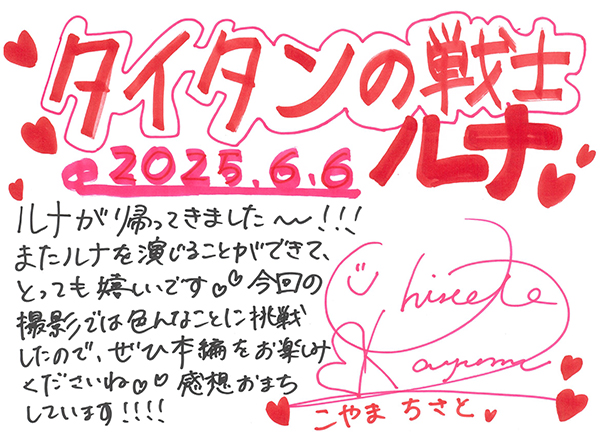 タイタンの戦士
ルナ
2025.6.6
ルナが帰ってきました〜!!!
またルナを演じることができて、
とっても嬉しいです♡♡今回の
撮影では色んなことに挑戦
したので、ぜひ本編をお楽しみ
くださいね♡♡ 感想おまち
しています!!!!
こやま ちさと